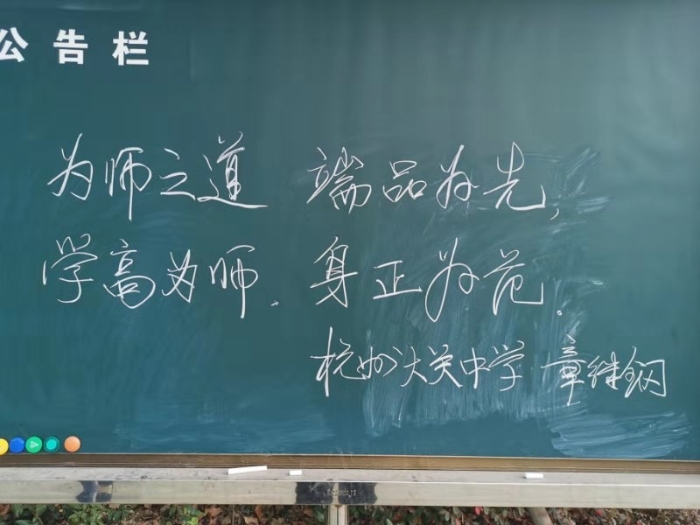 公告栏
为师之道 端品为先,
学高为师. 身正为范.
杭州大关中学 章继钢